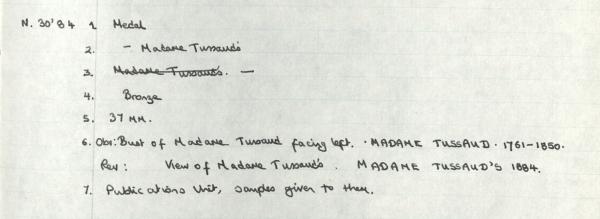 N. 30'84 1. Medal
2. - Madame Tussauds
3. Madame Tussauds. -
4. Bronze
5. 37 MM.
6. Obv: Bust of Madame Tussaud facing left. · MADAME TUSSAUD · 1761-1850.
Rev: View of Madame Tussauds. MADAME TUSSAUD'S 1884.
7. Publications Unit, samples given to them.